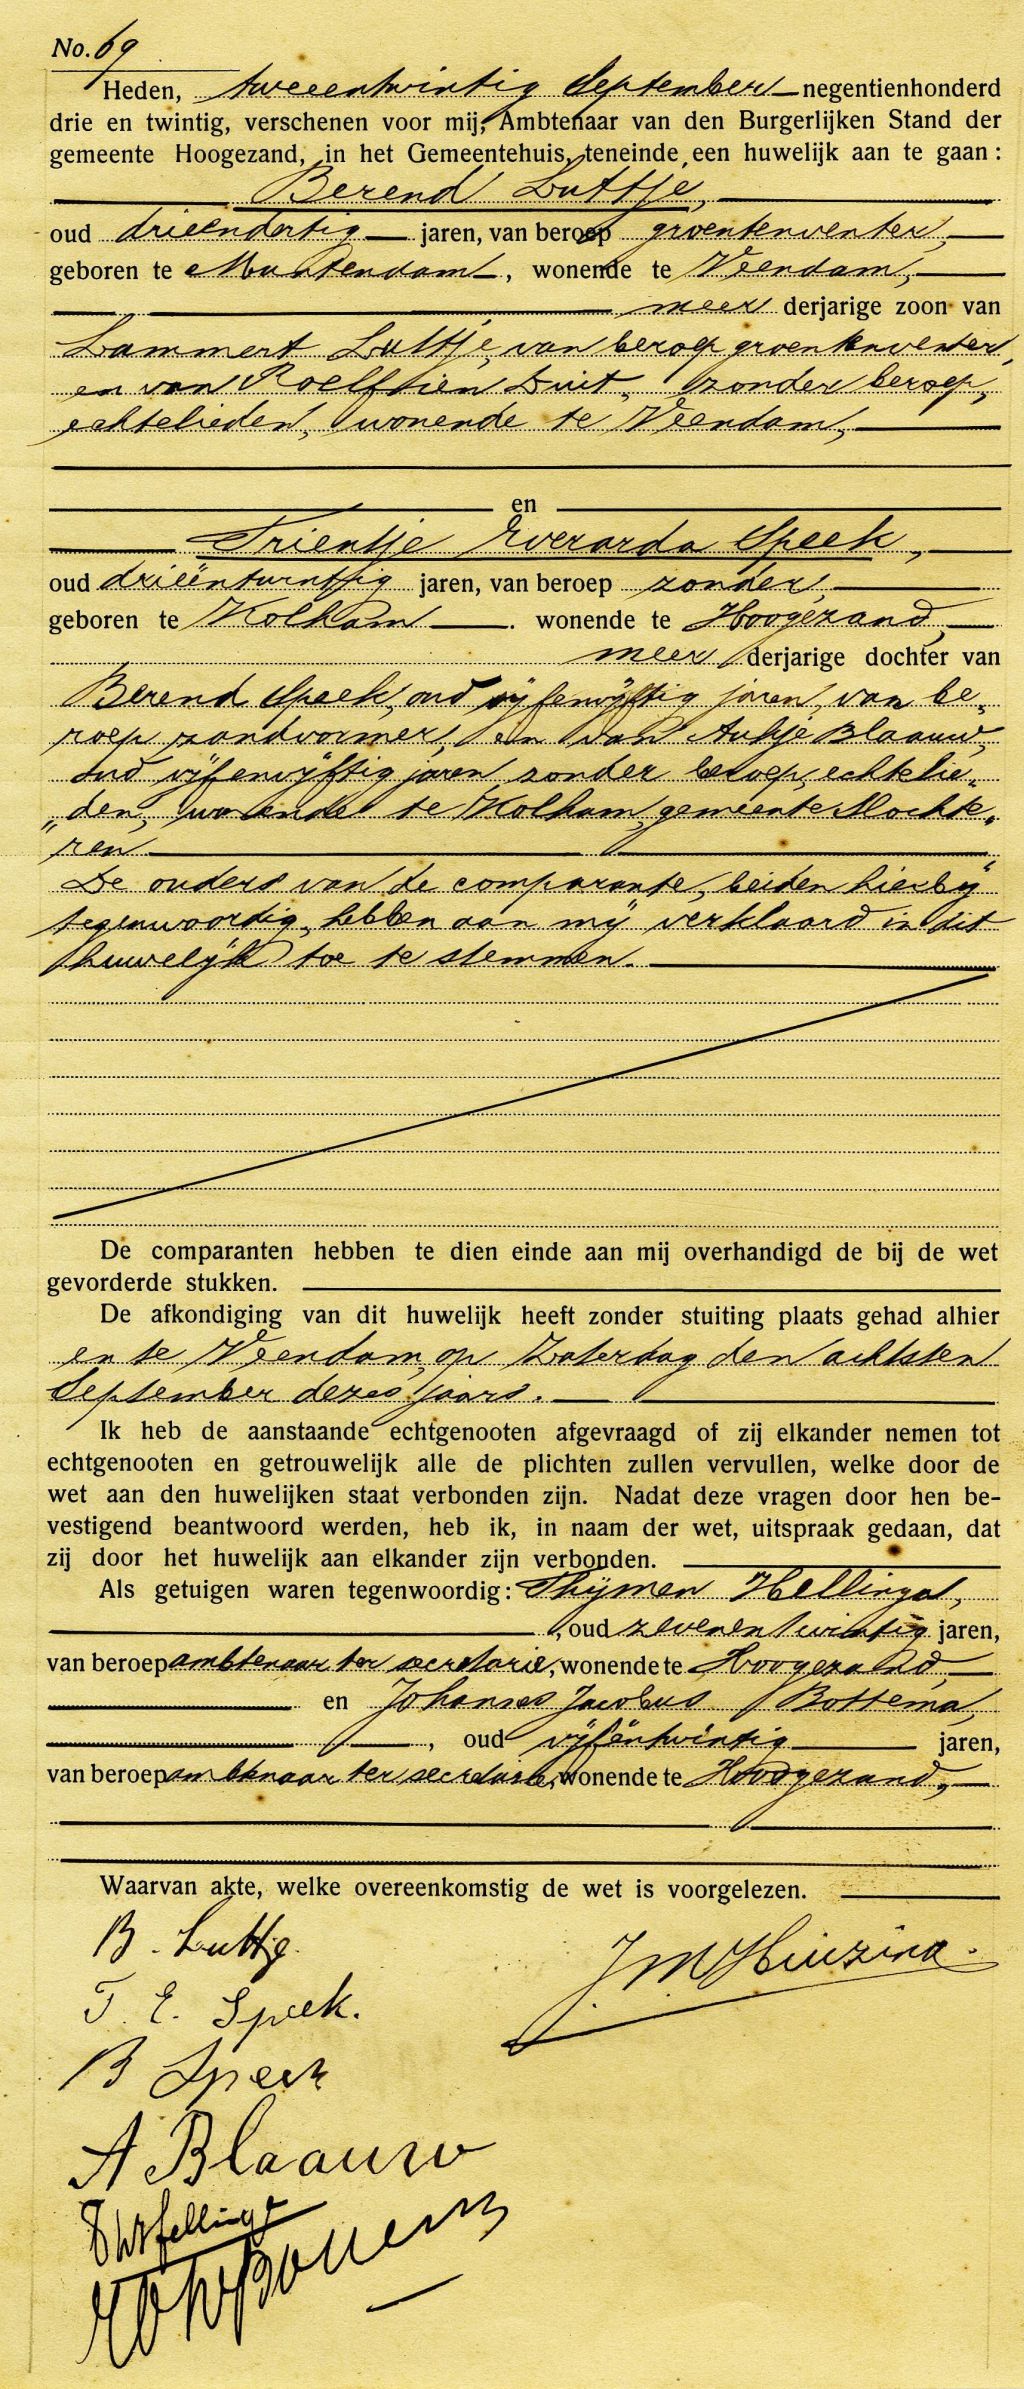 No. 69
Heden, tweeentwintig September negentienhonderd
drie en twintig, verschenen voor mij, Ambtenaar van den Burgerlijken Stand der
gemeente Hoogezand, in het Gemeentehuis, teneinde een huwelijk aan te gaan:
Berend Luttje,
oud drieendertig jaren, van beroep groentenventer,
geboren te Muntendam, wonende te Veendam,
meer derjarige zoon van
Lammert Luttje, van beroep groentenventer,
en van Roelftien Duit, zonder beroep,
echtelieden, wonende te Veendam,
en
Trientje Everarda Speek,
oud drieëntwintig jaren, van beroep zonder,
geboren te Kolham wonende te Hoogezand,
meer derjarige dochter van
Berend Speek, oud vijfenvijftig jaren, van be-
roep zandvormer, en van Aukje Blaauw,
oud vijfenvijftig jaren zonder beroep, echtelie-
den, wonende te Kolham, gemeente Slochte-
ren
De ouders van de comparante, beiden hierbij
tegenwoordig, hebben aan mij verklaard in dit
huwelijk toe te stemmen.
De comparanten hebben te dien einde aan mij overhandigd de bij de wet
gevorderde stukken.
De afkondiging van dit huwelijk heeft zonder stuiting plaats gehad alhier
en te Veendam, op Zaterdag den achtsten
September dezes jaars.
Ik heb de aanstaande echtgenooten afgevraagd of zij elkander nemen tot
echtgenooten en getrouwelijk alle de plichten zullen vervullen, welke door de
wet aan den huwelijken staat verbonden zijn. Nadat deze vragen door hen be-
vestigend beantwoord werden, heb ik, in naam der wet, uitspraak gedaan, dat
zij door het huwelijk aan elkander zijn verbonden.
Als getuigen waren tegenwoordig: Thijmen Hellinga,
, oud zevenentwintig jaren,
van beroep ambtenaar ter secretarie, wonende te Hoogezand,
en Johannes Jacobus Bottema,
, oud vijfentwintig jaren,
van beroep ambtenaar ter secretarie, wonende te Hoogezand,
Waarvan akte, welke overeenkomstig de wet is voorgelezen.
B. Luttje.
T. E. Speek.
B Speek
A Blaauw